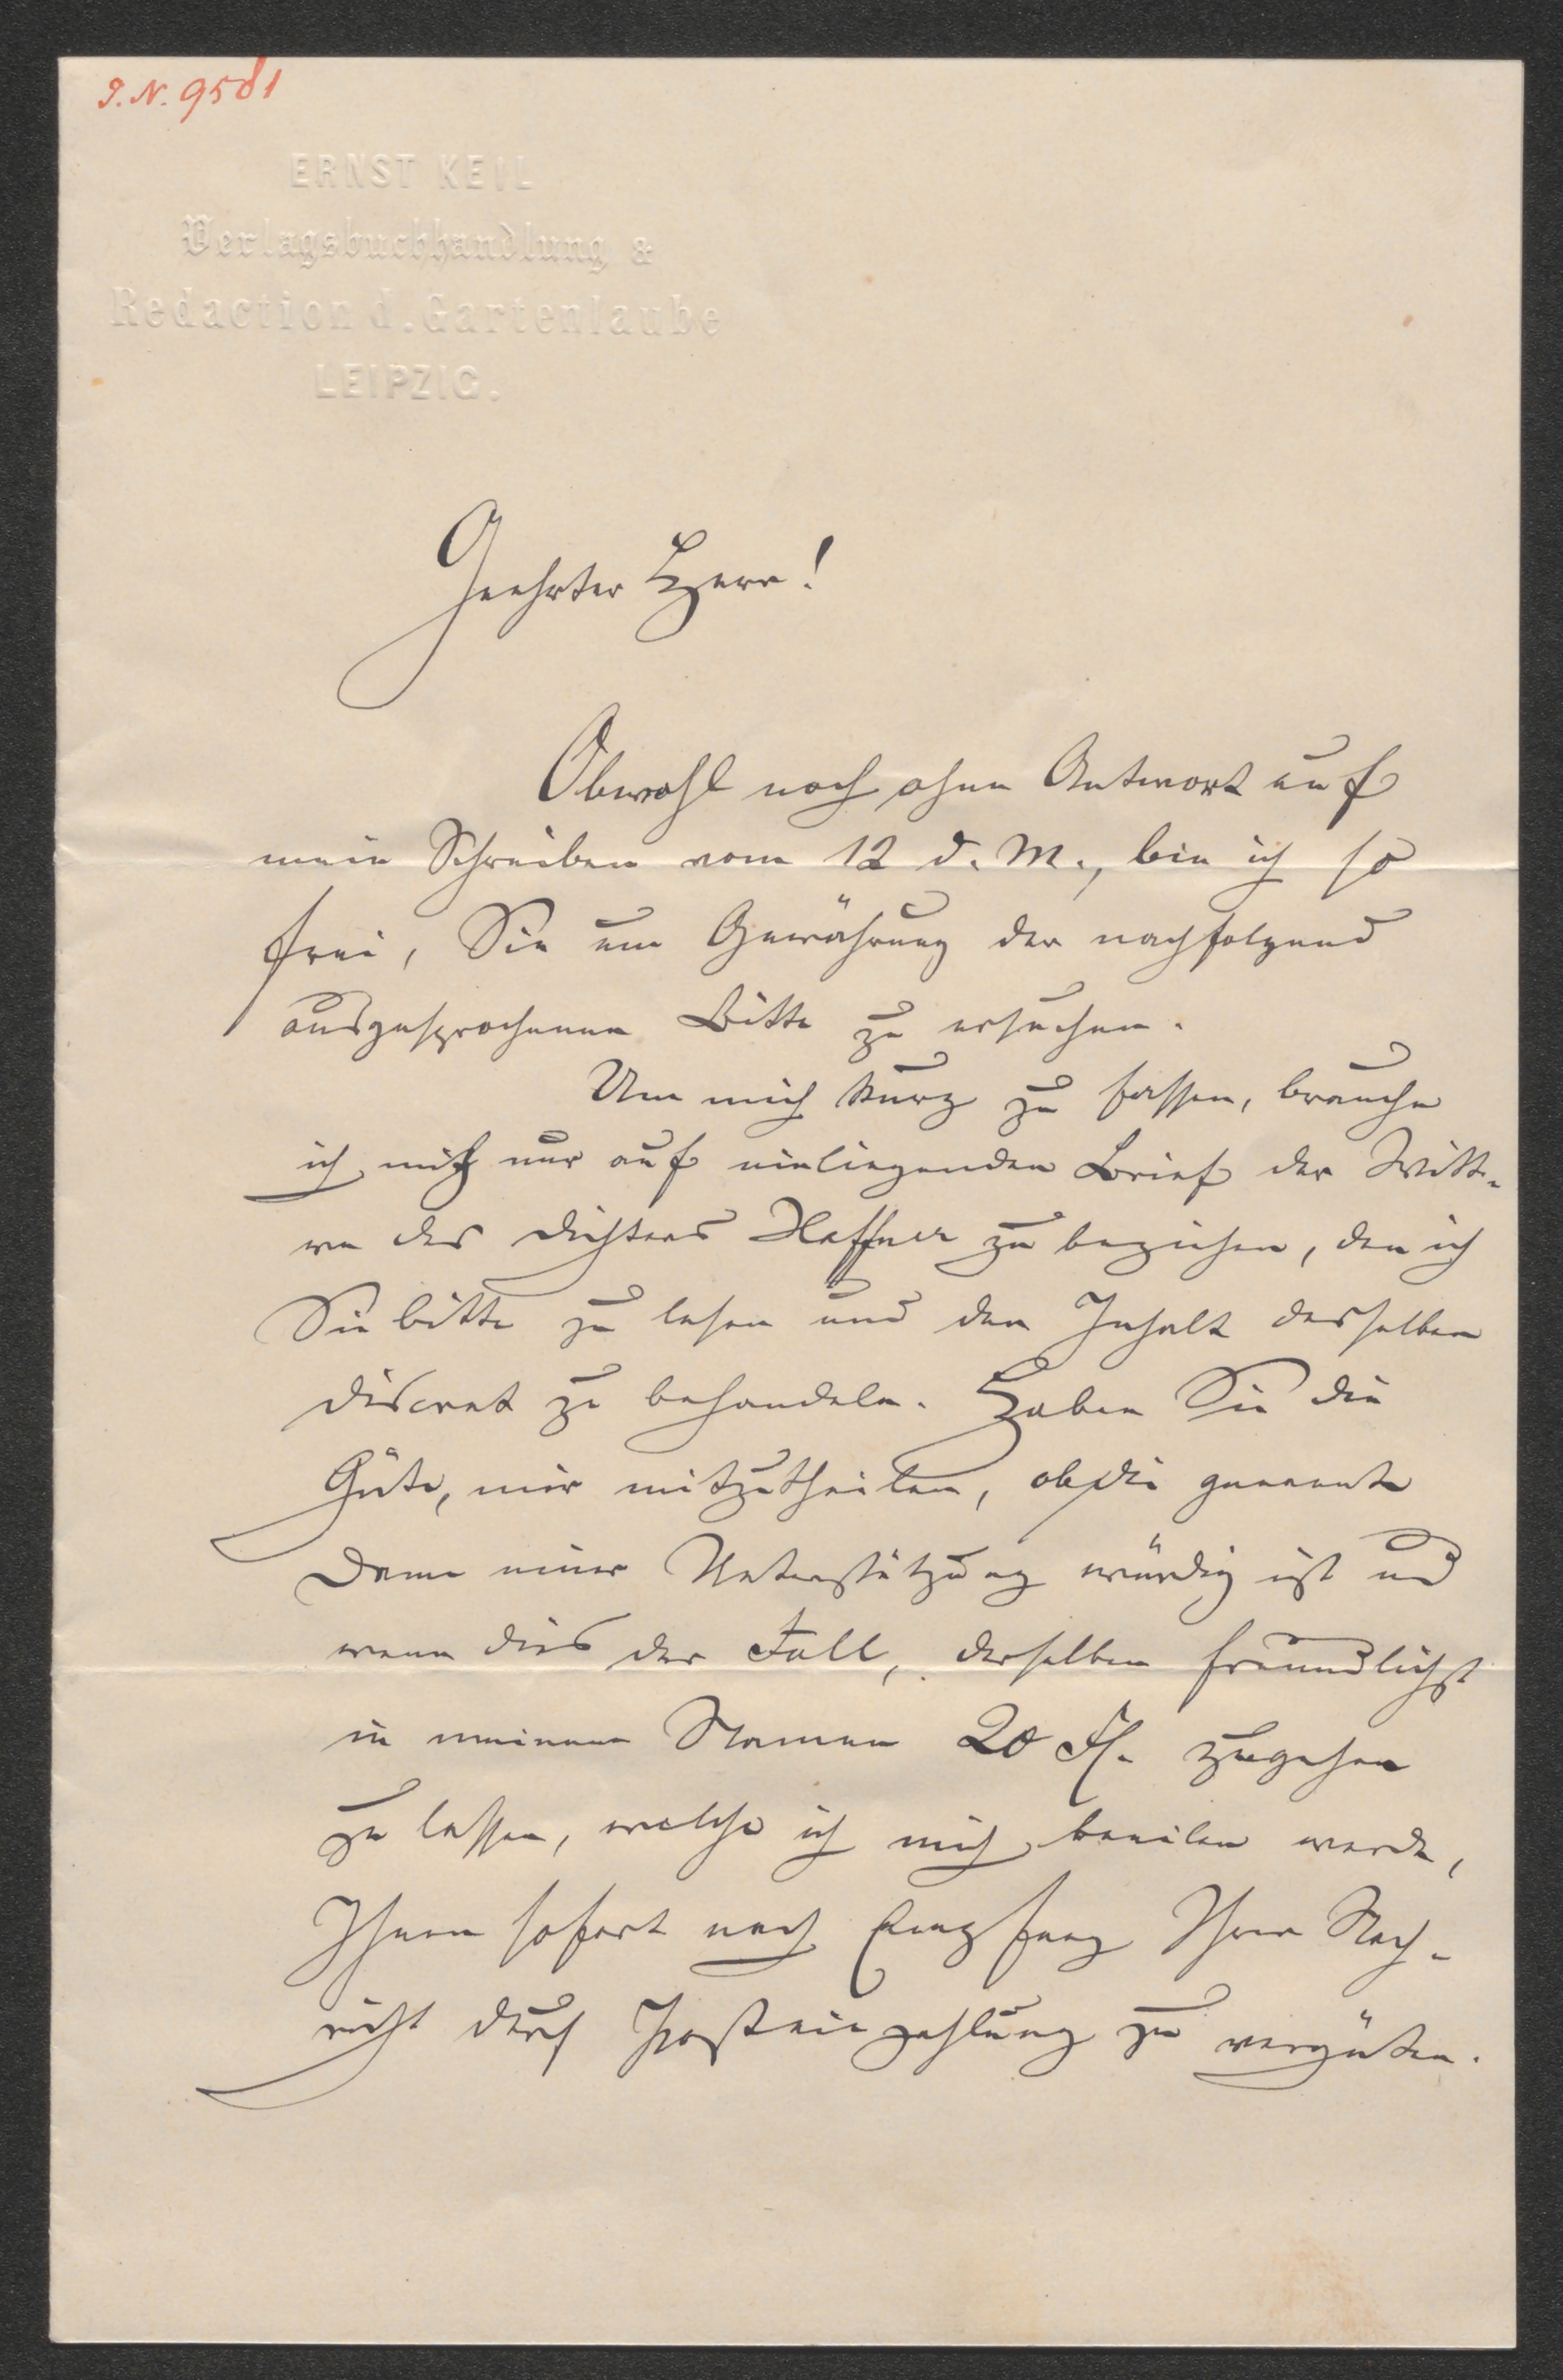 I. N. 9581
ERNST KEIL
Verlagsbuchhandlung &
Redaction d. Gartenlaube
LEIPZIG.
Geehrter Herr!
Obwohl noch ohne Antwort auf
mein Schreiben vom 12 d. M., bin ich so
frei, Sie um Gewährung der nachfolgend
ausgesprochenen Bitte zu ersuchen.
Um mich kurz zu fassen, brauche
ich mich nur auf einliegenden Brief der Witt-
we des Dichters Haffner zu beziehen, den ich
Sie bitte zu lesen und den Inhalt desselben
discret zu behandeln. Haben Sie die
Güte, mir mitzutheilen, ob die genannte
Dame einer Unterstützung würdig ist und
wenn dies der Fall, derselben freundlichst
in meinem Namen 20 Fl. zugehen
zu lassen, welche ich mich beeilen werde,
Ihnen sofort nach Empfang Ihrer Nach-
richt durch Posteinzahlung zu vergüten.